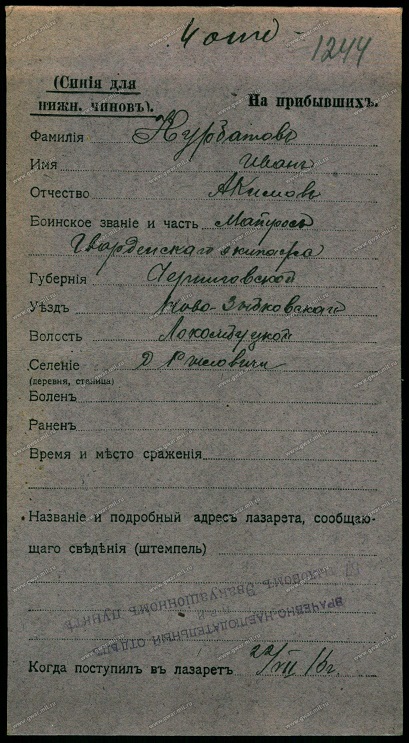 4 отд
1244
(Синія для
нижн. чиновъ).
На прибывшихъ.
Фамилія Курбатовъ
Имя Иванъ
Отчество Акимовъ
Воинское званіе и часть Матросъ
Гвардейскаго экипажа
Губернія Черниговской
Уѣздъ Ново-Зыбковскаго
Волость
Селеніе Д
(деревня, станица)
Боленъ
Раненъ
Время и мѣсто сраженія
Названіе и подробный адресъ лазарета, сообщаю-
щаго свѣдѣнія (штемпель)
Эвакуаціонномъ пунктѣ
ВРАЧЕБНО-НАБЛЮДАТЕЛЬНЫЙ ОТДѢЛЪ
Когда поступилъ въ лазаретъ 22/VII 16 г.